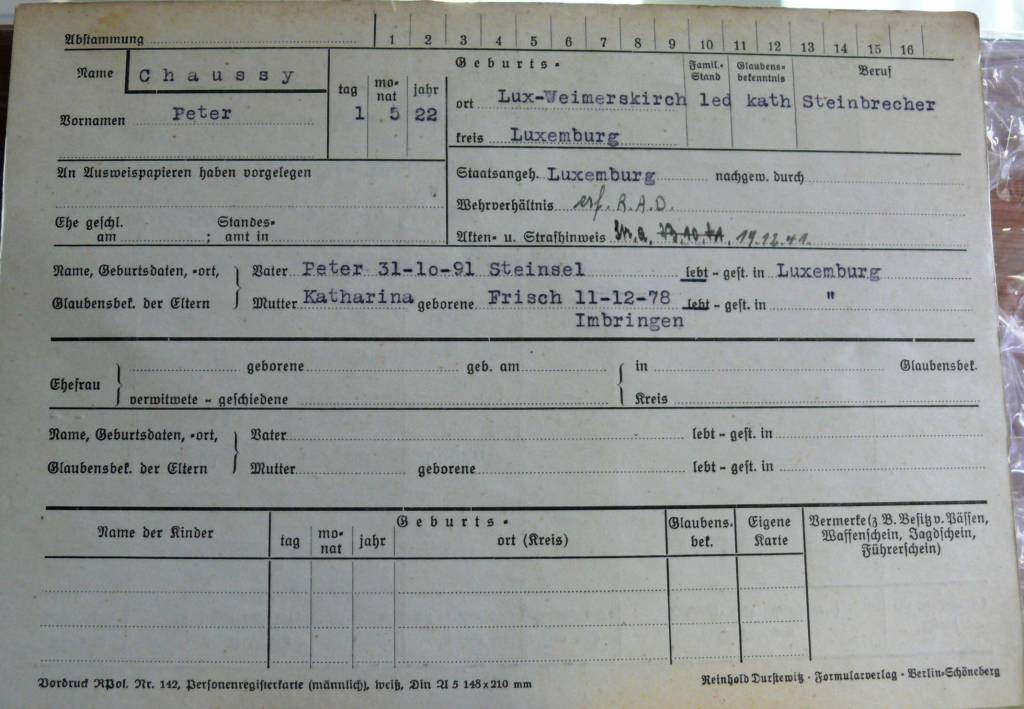 Abstammung 1 2 3 4 5 6 7 8 9 10 11 12 13 14 15 16
Name Chaussy
Vornamen Peter
tag monat jahr
1 5 22
Geburts-
ort Lux-Weimerskirch
kreis Luxemburg
Famil.-Stand
led
Glaubens-bekenntnis
kath
Beruf
Steinbrecher
An Ausweispapieren haben vorgelegen
Ehe geschl. Standes-
am ; amt in
Staatsangeh. Luxemburg nachgew. durch
Wehrverhältnis erf. R.A.D.
Akten- u. Strafhinweis 19.12.41.
Name, Geburtsdaten, -ort, Vater Peter 31-10-91 Steinsel lebt - gest. in Luxemburg
Glaubensbek. der Eltern Mutter Katharina geborene Frisch 11-12-78 lebt - gest. in "
Imbringen
Ehefrau geborene geb. am in Glaubensbek.
verwitwete - geschiedene Kreis
Name, Geburtsdaten, -ort, Vater lebt - gest. in
Glaubensbek. der Eltern Mutter geborene lebt - gest. in
Name der Kinder
Geburts-
tag monat jahr ort (Kreis)
Glaubens-
bek.
Eigene
Karte
Vermerke (z B. Besitz v. Pässen,
Waffenschein, Jagdschein,
Führerschein)
Vordruck RPol. Nr. 142, Personenregisterkarte (männlich), weiß, Din A 5 148x210 mm
Reinhold Durstewitz · Formularverlag · Berlin-Schöneberg